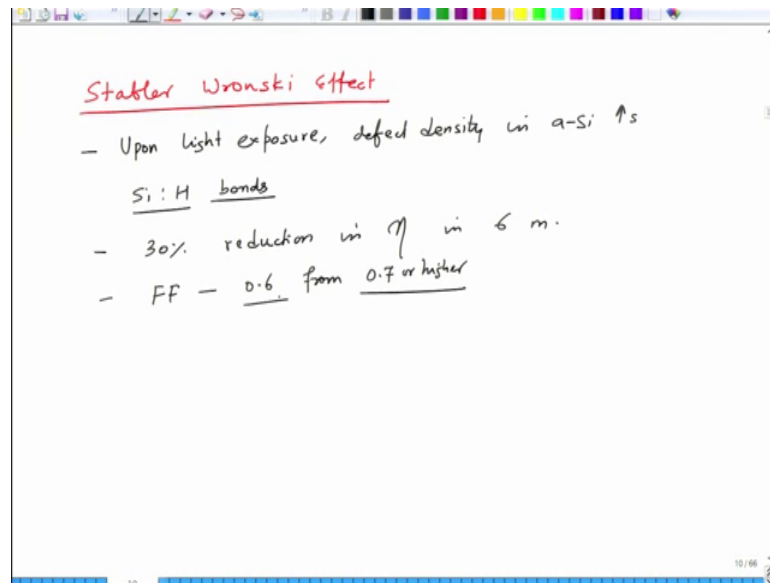 Stabler Wronski Effect
- Upon light exposure, defect density in a-Si ↑s
Si : H bonds
- 30% reduction in η in 6 m.
- FF - 0.6 from 0.7 or higher
10 / 66